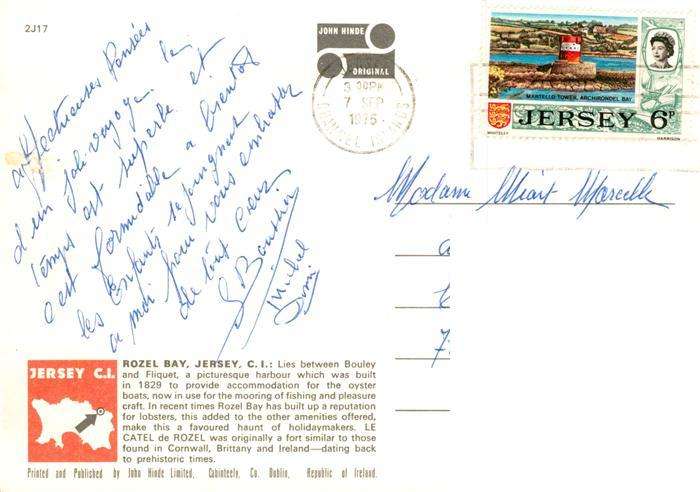 2J17
JOHN HINDE
ORIGINAL
3 00PM
7 SEP
1975
CHANNEL ISLANDS
MARTELLO TOWER, ARCHIRONDEL BAY
JERSEY 6P
WHITELEY
HARRISON
affectueuses Pensées
d'un joli voyage. le
temps est superbe et
c'est formidable a bientot
les Enfants se joignent
a moi pour vous embrasser
de tout coeur
Michel
Madame Miart Marcelle
JERSEY C.I.
ROZEL BAY, JERSEY, C.I.: Lies between Bouley
and Fliquet, a picturesque harbour which was built
in 1829 to provide accommodation for the oyster
boats, now in use for the mooring of fishing and pleasure
craft. In recent times Rozel Bay has built up a reputation
for lobsters, this added to the other amenities offered,
make this a favoured haunt of holidaymakers. LE
CATEL de ROZEL was originally a fort similar to those
found in Cornwall, Brittany and Ireland—dating back
to prehistoric times.
Printed and Published by John Hinde Limited, Cabinteely, Co. Dublin, Republic of Ireland.